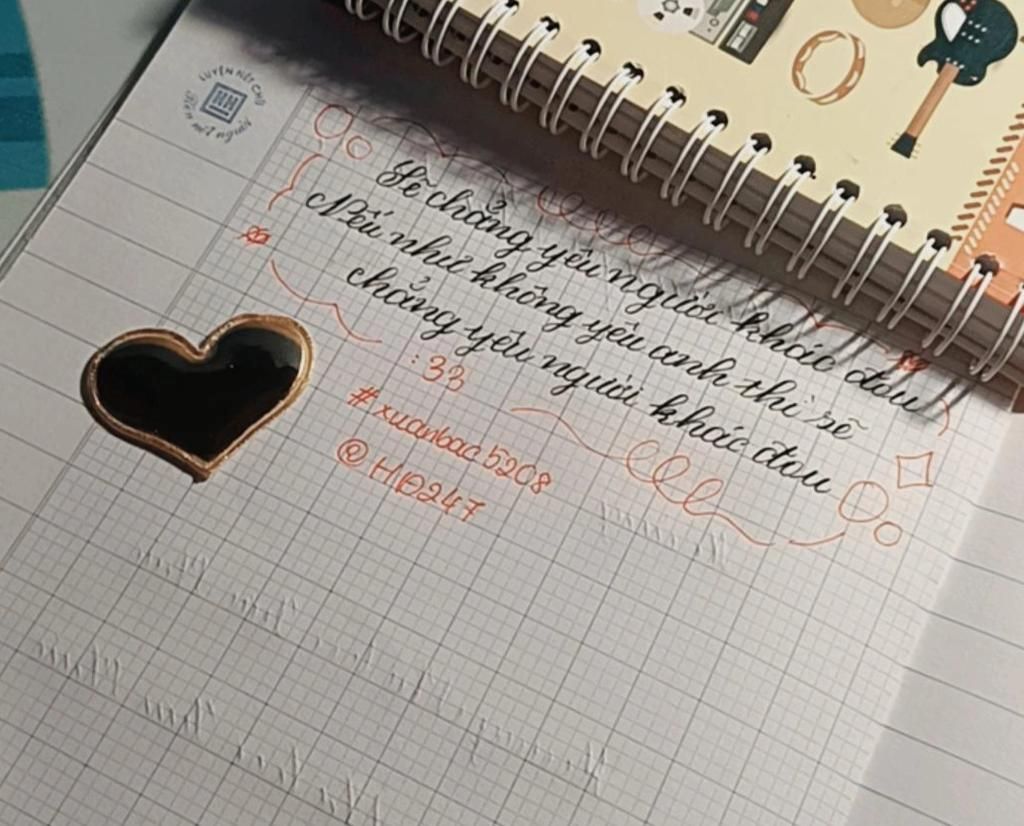 LUYỆN NÉT CHỮ
HH
Rèn nết người
Sẽ chẳng yêu người khác đâu
Nếu như không yêu anh thì sẽ
chẳng yêu người khác đâu
:33
#xuanbac5208
@HĐ247